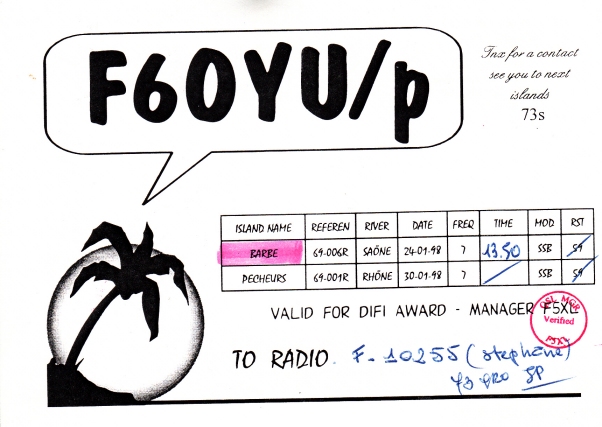 F6OYU/p
Tnx for a contact
see you to next
islands
73s
ISLAND NAME REFEREN RIVER DATE FREQ TIME MOD RST
BARBE 69-006R SAÔNE 24-01-98 7 13.50 SSB 59
PECHEURS 69-001R RHÔNE 30-01-98 7 SSB 59
VALID FOR DIFI AWARD - MANAGER F5XL
QSL MGR
Verified
F5XL
TO RADIO. F-10255 (stephane)
73 PRO